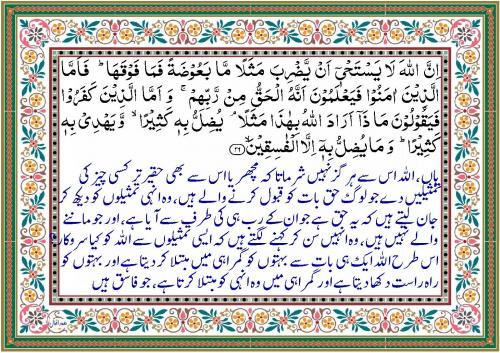 اِنَّ اللّٰهَ لَا يَسْتَحْيٖٓ اَنْ يَّضْرِبَ مَثَلًا مَّا بَعُوْضَةً فَمَا فَوْقَهَا ؕ فَاَمَّا
الَّذِيْنَ اٰمَنُوْا فَيَعْلَمُوْنَ اَنَّهُ الْحَقُّ مِنْ رَّبِّهِمْ ۚ وَ اَمَّا الَّذِيْنَ كَفَرُوْا
فَيَقُوْلُوْنَ مَا ذَاۤ اَرَادَ اللّٰهُ بِهٰذَا مَثَلًا ۘ يُضِلُّ بِهٖ كَثِيْرًا ۙ وَّ يَهْدِيْ بِهٖ
كَثِيْرًا ؕ وَ مَا يُضِلُّ بِهٖۤ اِلَّا الْفٰسِقِيْنَ ۙ ﴿۲۶﴾
ہاں، اللہ اس سے ہرگز نہیں شرماتا کہ مچھر یا اس سے بھی حقیر تر کسی چیز کی
تمثیلیں دے جو لوگ حق بات کو قبول کرنے والے ہیں، وہ انہی تمثیلوں کو دیکھ کر
جان لیتے ہیں کہ یہ حق ہے جو ان کے رب ہی کی طرف سے آیا ہے، اور جو ماننے
والے نہیں ہیں، وہ انہیں سن کر کہنے لگتے ہیں کہ ایسی تمثیلوں سے اللہ کو کیا سروکار؟
اس طرح اللہ ایک ہی بات سے بہتوں کو گمراہی میں مبتلا کر دیتا ہے اور بہتوں کو
راہ راست دکھا دیتا ہے اور گمراہی میں وہ انہی کو مبتلا کرتا ہے، جو فاسق ہیں